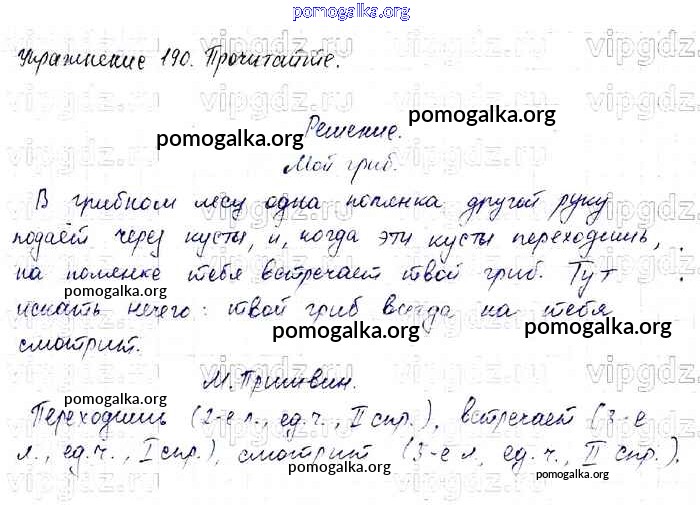 pomogalka.org
Упражнение 190. Прочитайте.
Решение.
Мой гриб.
В грибном лесу одна полянка другой руку
подаёт через кусты, и, когда эти кусты переходишь,
на полянке тебя встречает твой гриб. Тут
искать нечего: твой гриб всегда на тебя
смотрит.
М. Пришвин.
Переходишь (2-е л., ед.ч., II спр.), встречает (3-е
л., ед.ч., I спр.), смотрит (3-е л., ед.ч., II спр.).
vipgdz.ru
pomogalka.org
pomogalka.org
pomogalka.org
pomogalka.org
pomogalka.org
pomogalka.org
pomogalka.org
pomogalka.org